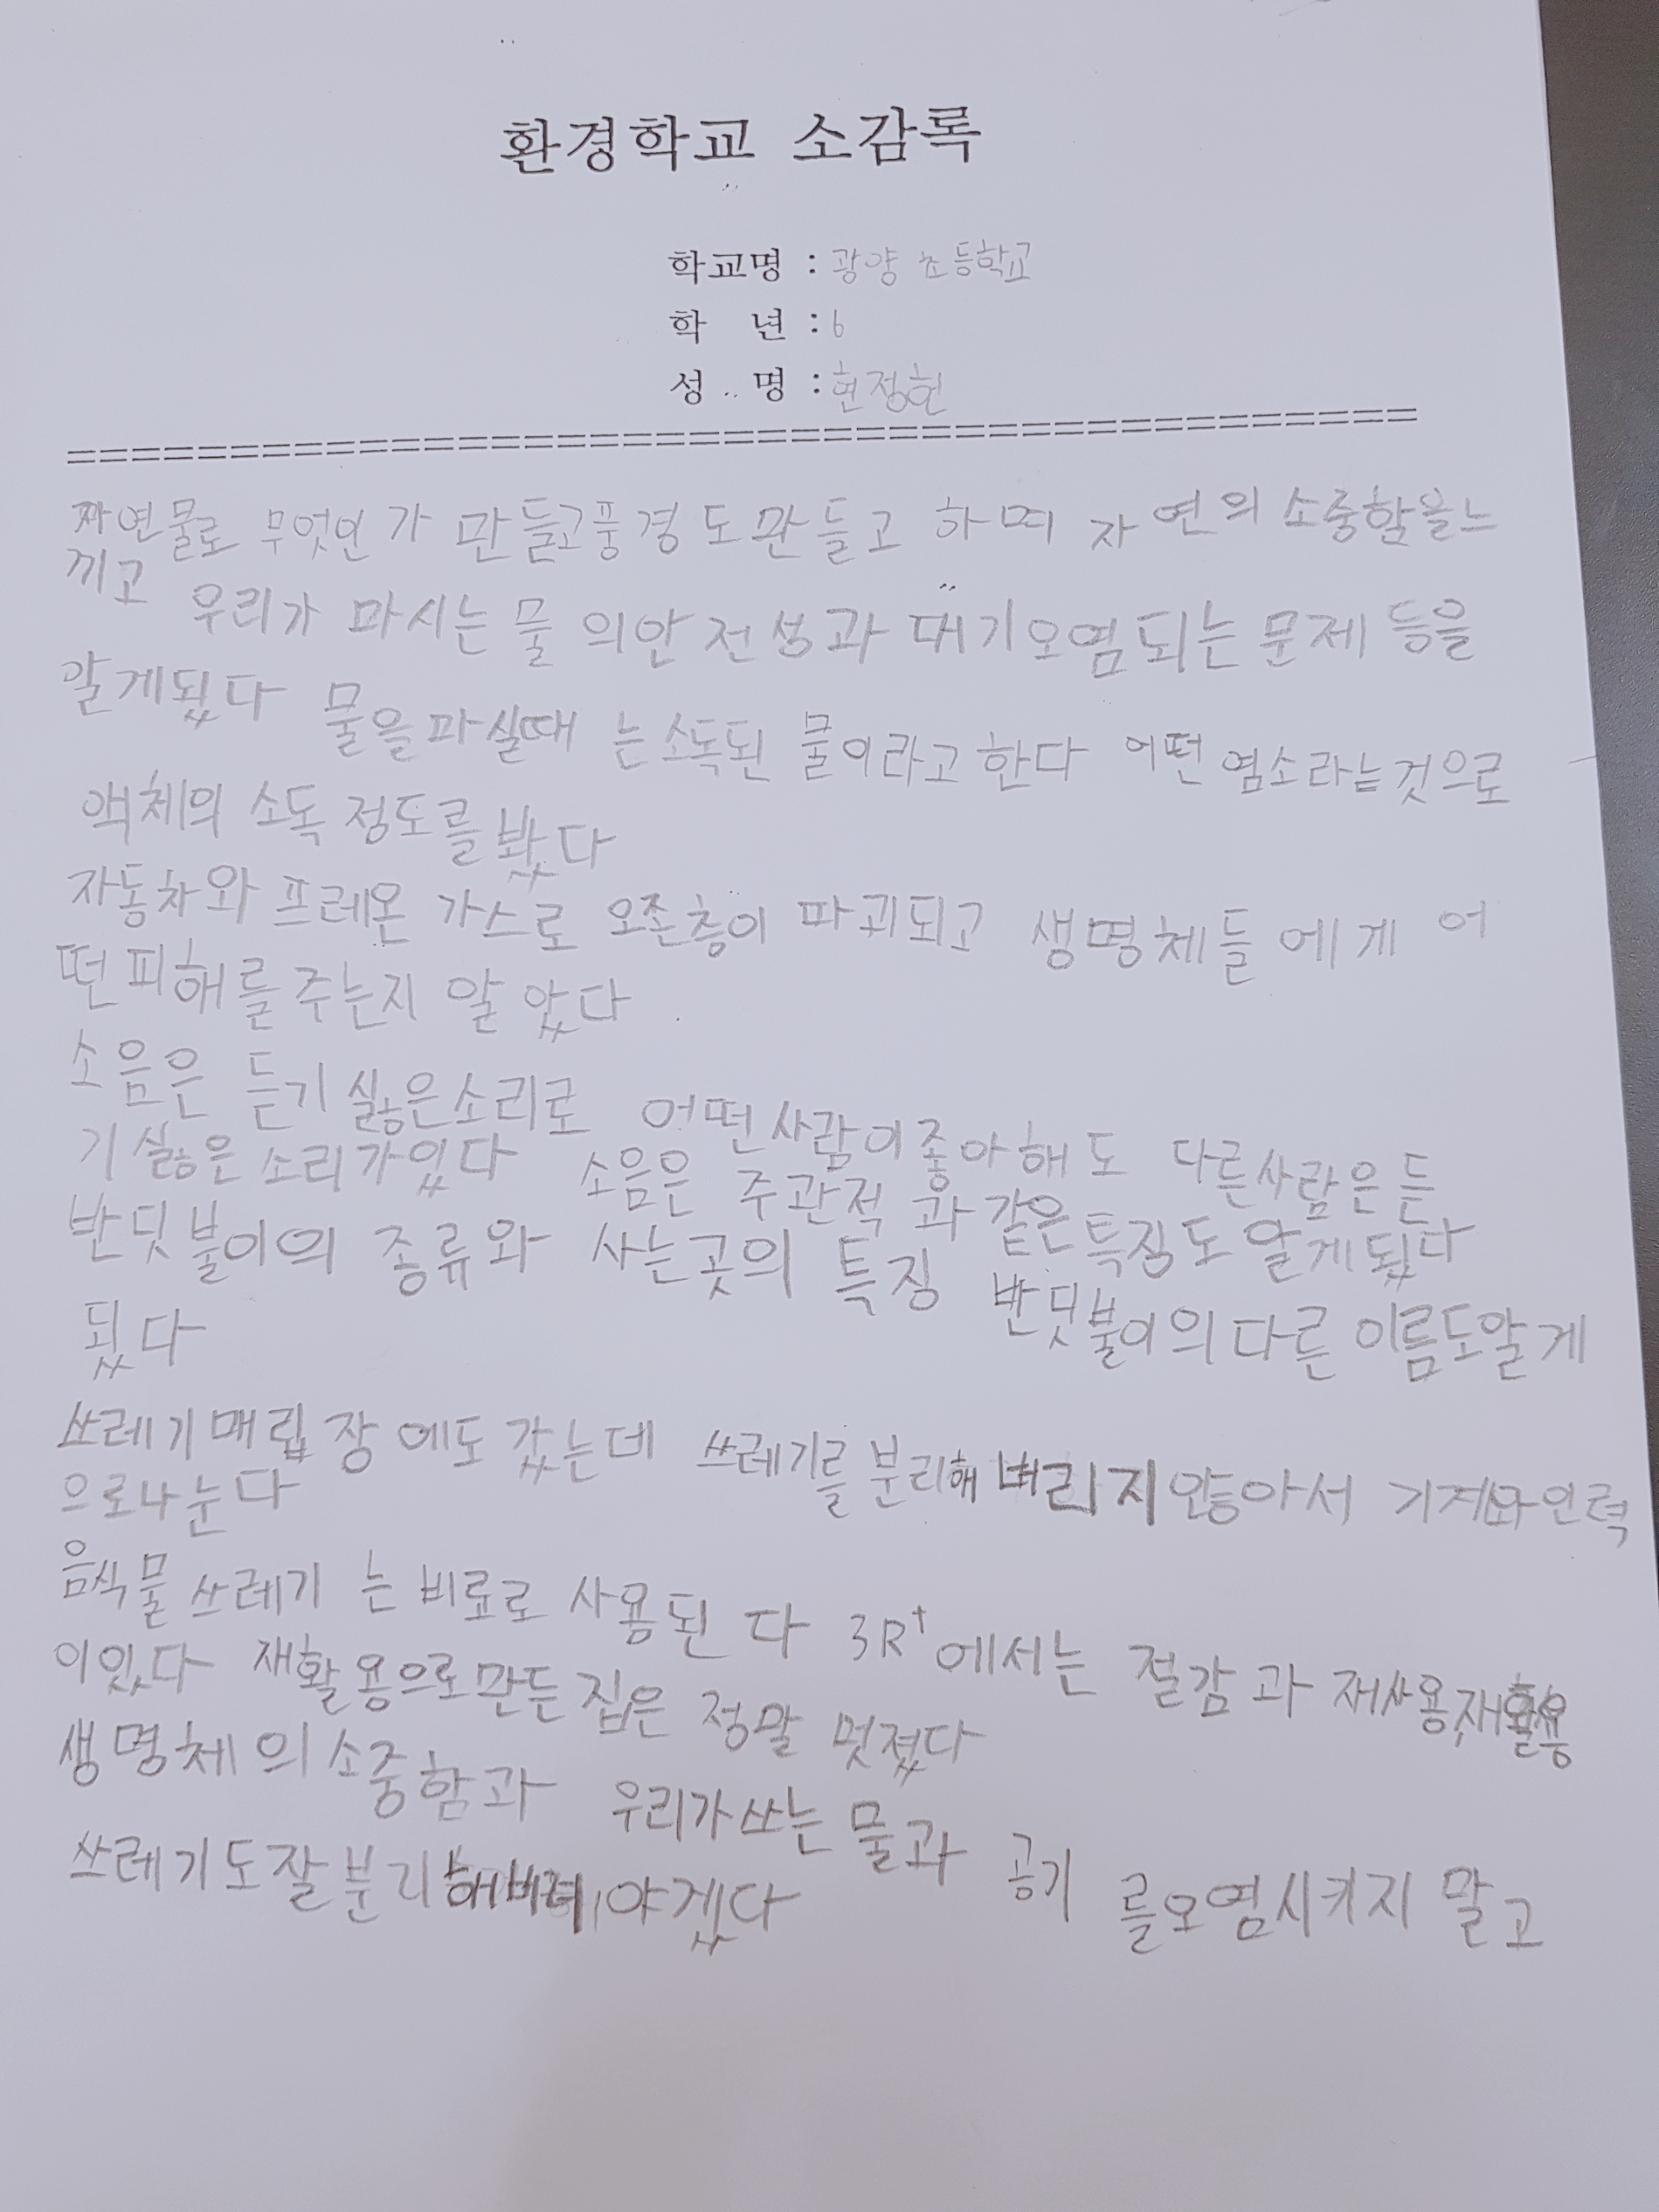 환경학교 소감록
학교명 : 광양 초등학교
학 년 : 6
성 명 : 현정헌
==========================================
자연물로 무엇인가 만들고풍경도만들고 하며 자연의 소중함을느
끼고 우리가 마시는 물의안전성과 대기오염되는 문제 등을
알게됬다 물을마실때는소독된 물이라고한다 어떤 염소라는것으로
액체의 소독 정도를 봤다
자동차와 프레온 가스로 오존층이 파괴되고 생명체들에게 어
떤피해를주는지 알았다
소음은 듣기싫은소리로 어떤사람이좋아해도 다른사람은듣
기싫은소리가있다 소음은 주관적과같은특징도알게됬다
반딧불이의 종류와 사는곳의 특징 반딧불이의다른이름도알게
됬다
쓰레기매립장에도갔는데 쓰레기를분리해버리지않아서 기계와인력
으로나눈다
음식물쓰레기는비료로 사용된다 3R+에서는 절감과 재사용,재활용
이있다 재활용으로만든집은 정말 멋졌다
생명체의소중함과 우리가쓰는물과 공기를오염시키지 말고
쓰레기도잘분리해버려야겠다